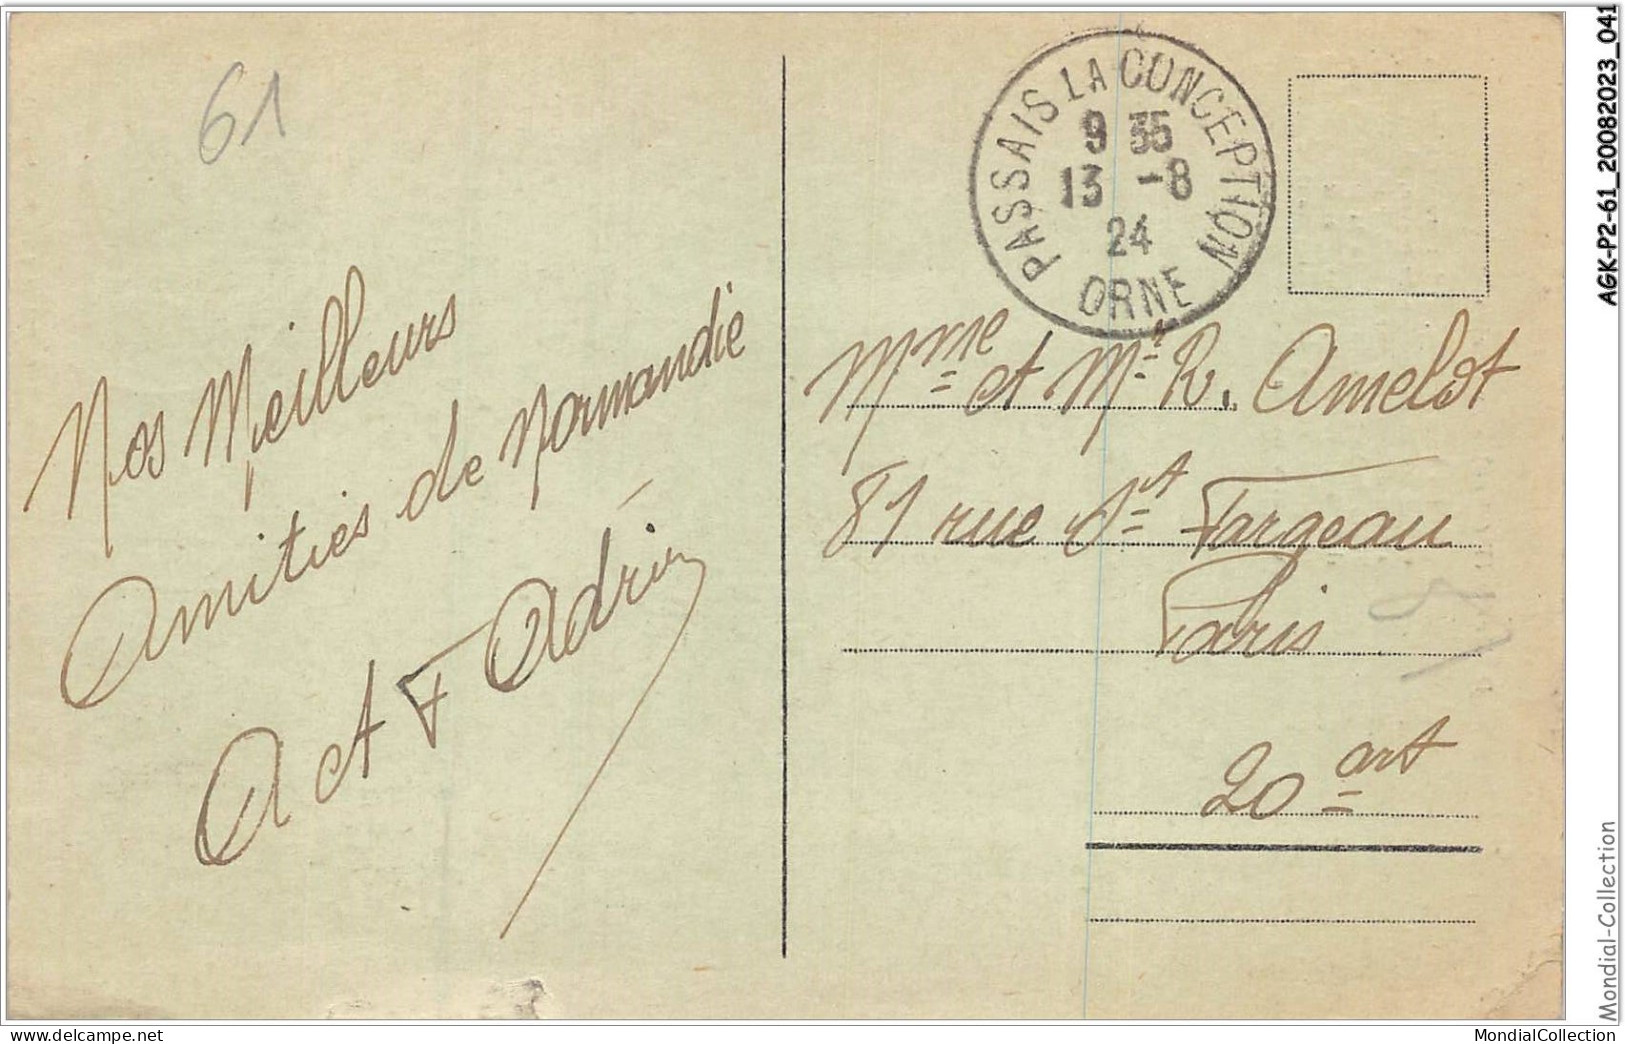 61
Nos Meilleurs
Amitiés de Normandie
A et F Adrien
PASSAIS LA CONCEPTION
9 35
13 -8
24
ORNE
Mme et Mr R. Amelot
81 rue St Fargeau
Paris
20 art
AGK-P2-61_20082023_041
Mondial-Collection
www.delcampe.net
MondialCollection